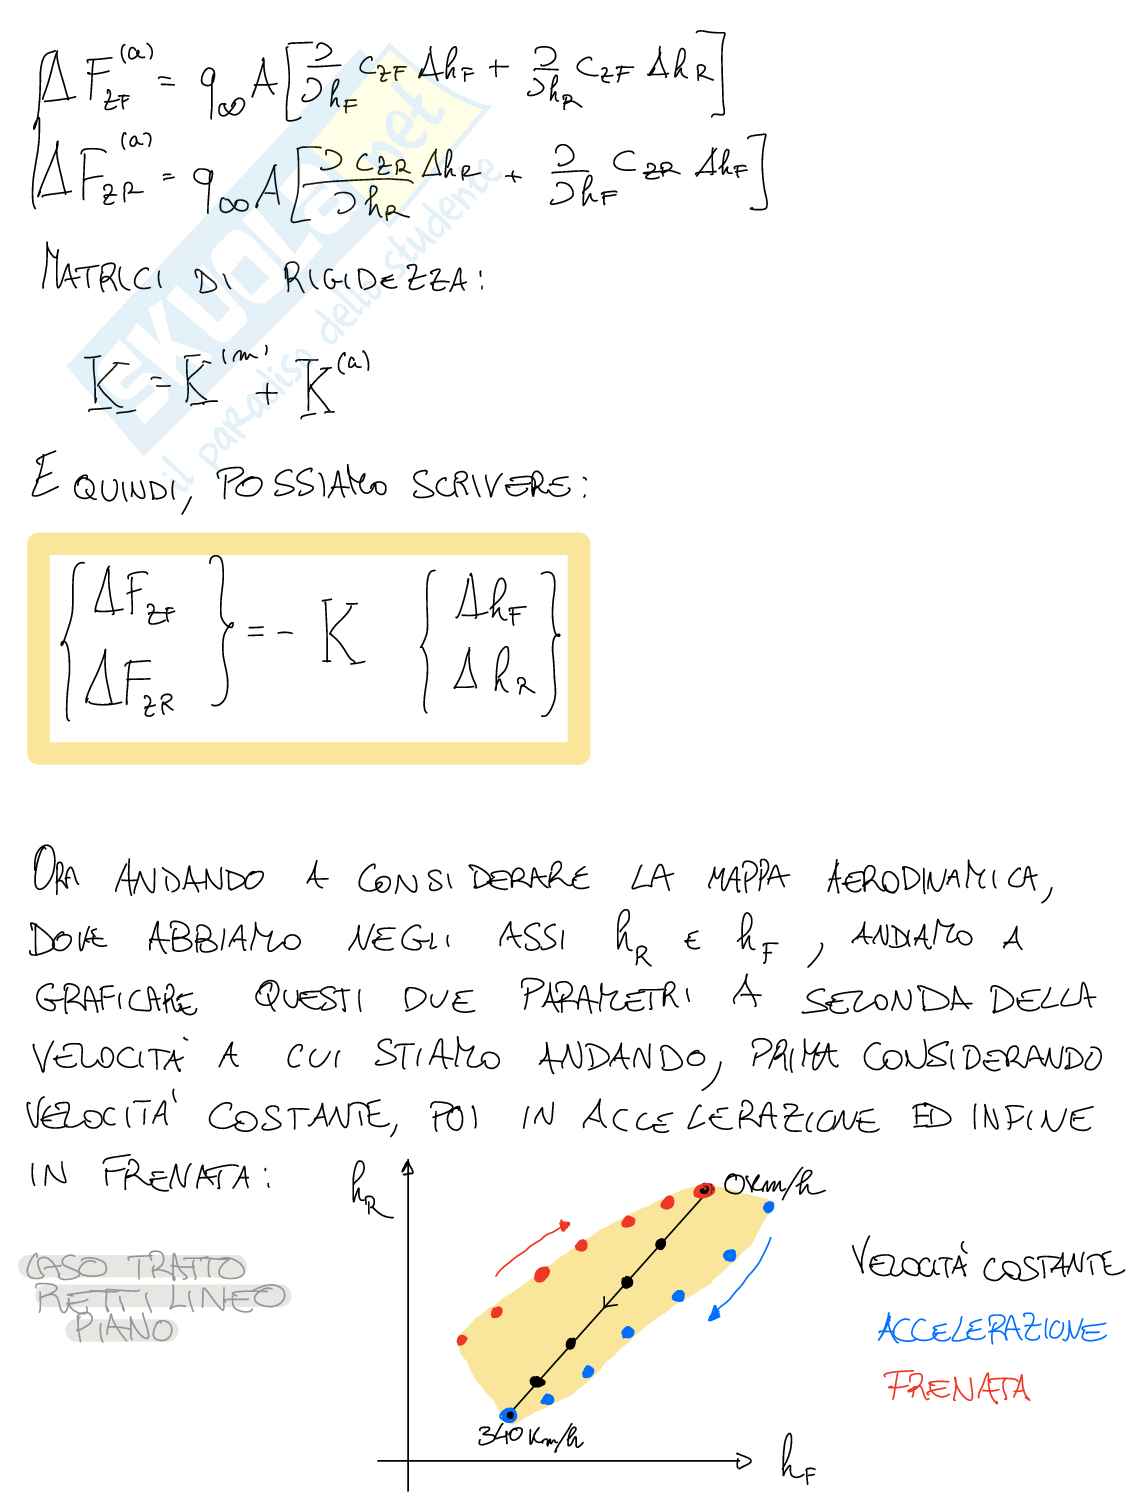 ΔF_{ZF}^{(a)} = q_∞ A [∂/∂h_F C_{ZF} Δh_F + ∂/∂h_R C_{ZF} Δh_R]
ΔF_{ZR}^{(a)} = q_∞ A [∂C_{ZR}/∂h_R Δh_R + ∂/∂h_F C_{ZR} Δh_F]
SKUOLA.net
il paradiso dello studente
MATRICI DI RIGIDEZZA:
K = K^{(m)} + K^{(a)}
E QUINDI, POSSIAMO SCRIVERE:
{ΔF_{ZF} ΔF_{ZR}} = - K {Δh_F Δh_R}
ORA ANDANDO A CONSIDERARE LA MAPPA AERODINAMICA,
DOVE ABBIAMO NEGLI ASSI h_R E h_F, ANDIAMO A
GRAFICARE QUESTI DUE PARAMETRI A SECONDA DELLA
VELOCITÀ A CUI STIAMO ANDANDO, PRIMA CONSIDERANDO
VELOCITÀ COSTANTE, POI IN ACCELERAZIONE ED INFINE
IN FRENATA:
h_R
0 km/h
CASO TRATTO
RETTILINEO
PIANO
VELOCITÀ COSTANTE
ACCELERAZIONE
FRENATA
340 Km/h
h_F